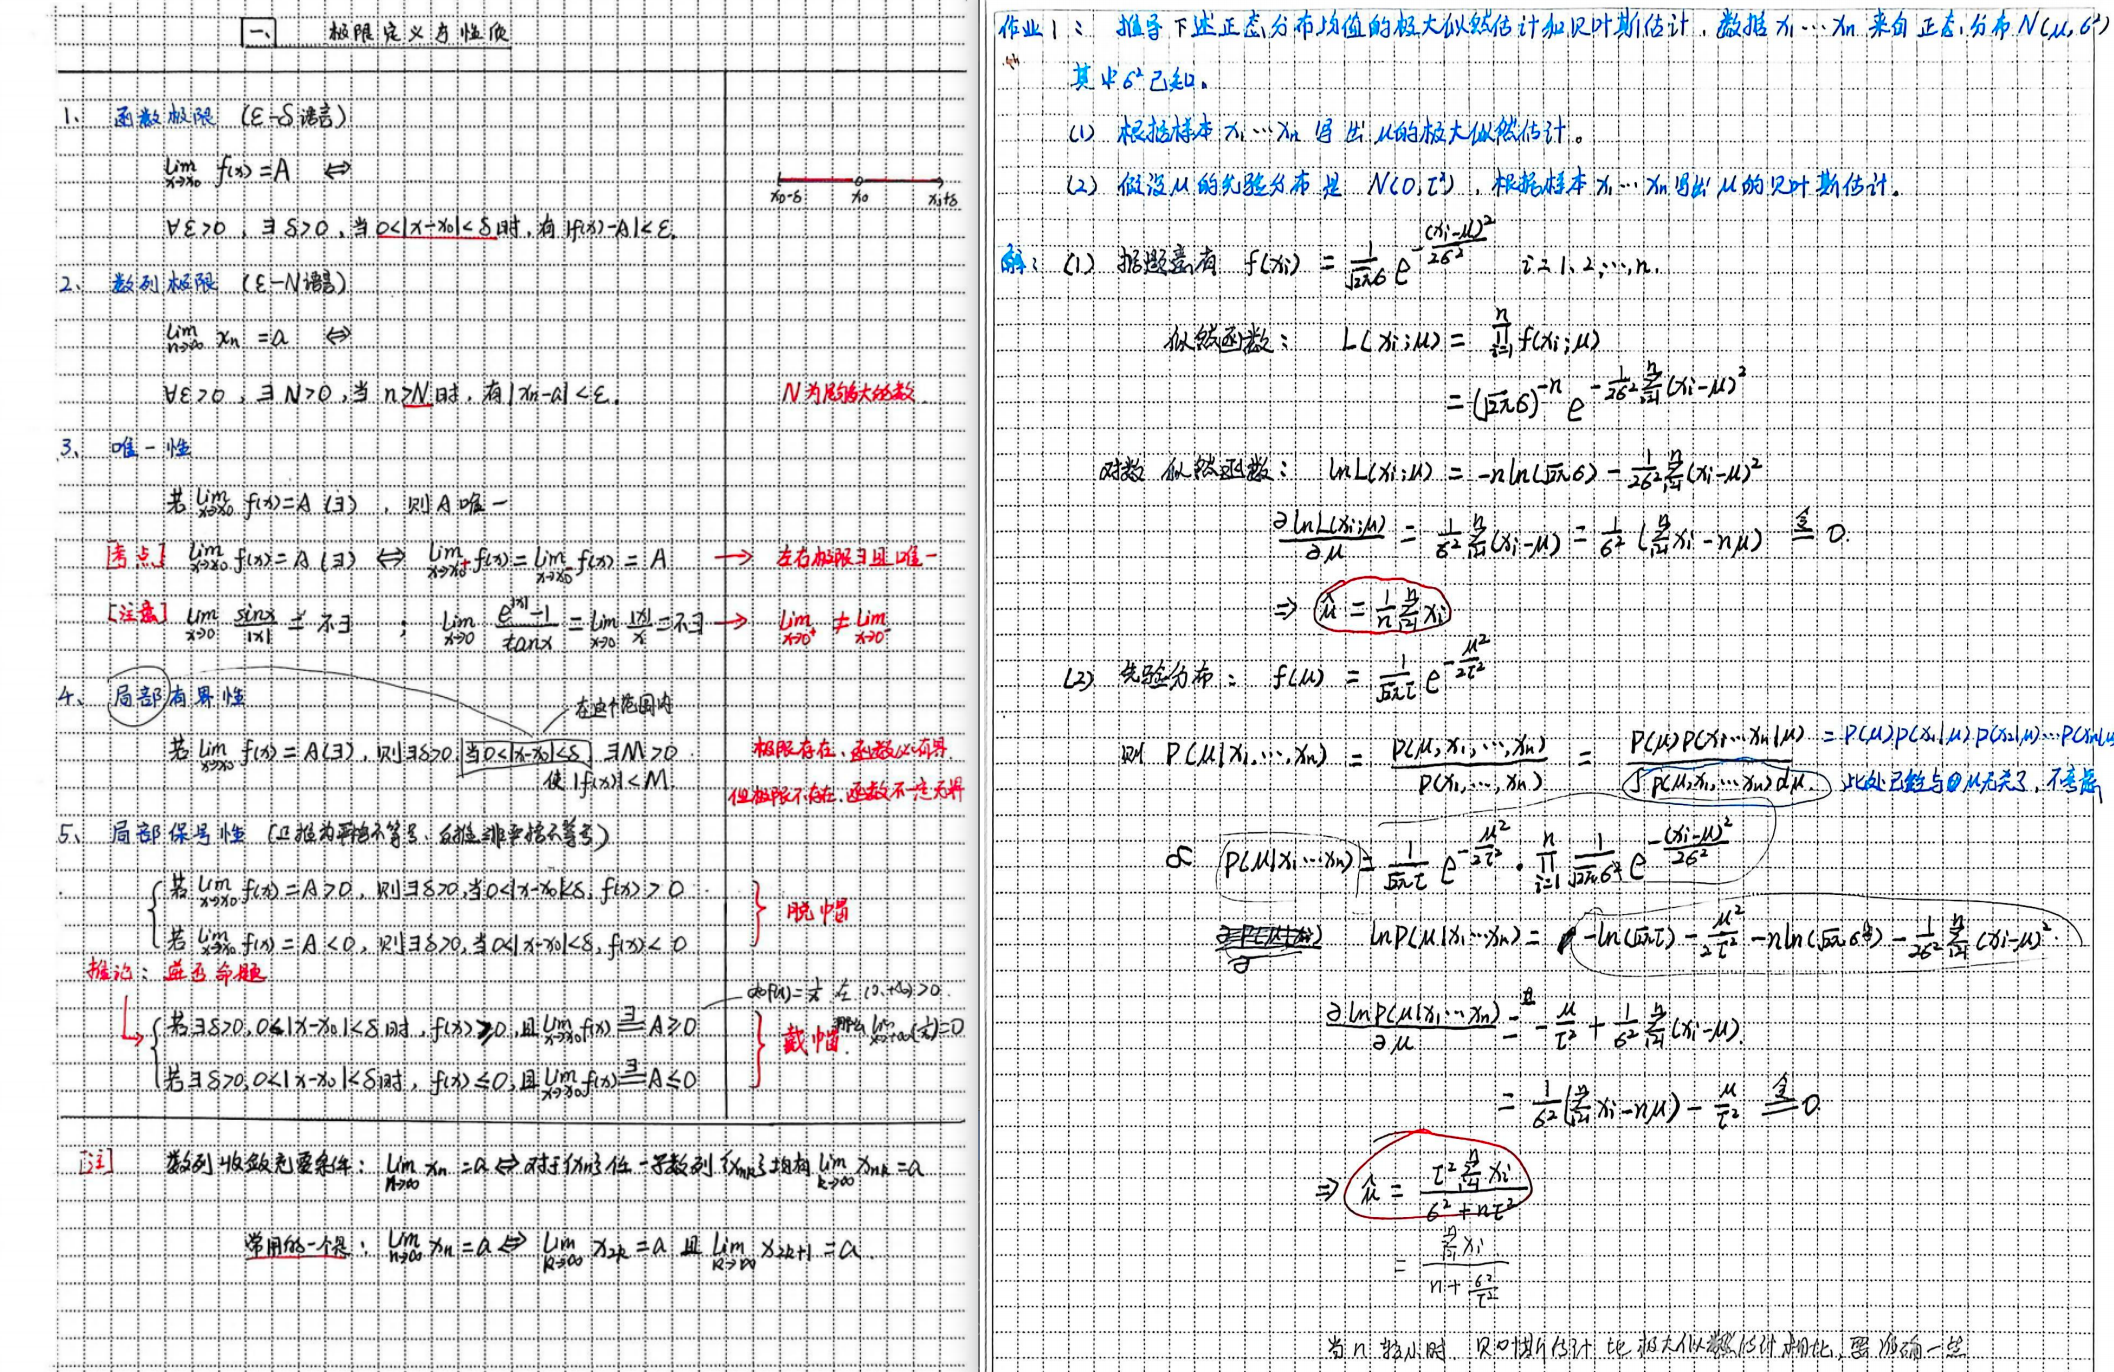 一、 极限定义与性质
1、 函数极限 (ε-δ语言)
lim x→x₀ f(x)=A ⇔
x₀-δ x₀ x₀+δ
∀ε>0, ∃δ>0, 当 0<|x-x₀|<δ时, 有|f(x)-A|<ε.
2、 数列极限 (ε-N语言)
lim n→∞ xₙ=a ⇔
∀ε>0, ∃N>0, 当 n>N时, 有|xₙ-a|<ε.
N为足够大的数
3、 唯一性
若 lim x→x₀ f(x)=A(∃), 则A唯一
[考点] lim x→x₀ f(x)=A(∃) ⇔ lim x→x₀⁺ f(x)=lim x→x₀⁻ f(x)=A → 左右极限∃且唯一
[注意] lim x→0 sinx/|x| = 不∃ ; lim x→0 (e^|x|-1)/tanx = lim x→0 |x|/x = 不∃ → lim x→0⁺ ≠ lim x→0⁻
4、 局部有界性
在这个范围内
若 lim x→x₀ f(x)=A(∃), 则∃δ>0, 当0<|x-x₀|<δ, ∃M>0
使|f(x)|<M.
极限存在, 函数必有界.
但极限不存在, 函数不一定无界
5、 局部保号性 (正推为严格不等号、反推非严格不等号)
若 lim x→x₀ f(x)=A>0, 则∃δ>0, 当0<|x-x₀|<δ, f(x)>0
若 lim x→x₀ f(x)=A<0, 则∃δ>0, 当0<|x-x₀|<δ, f(x)<0
脱帽
推论: 逆否命题
若∃δ>0, 0<|x-x₀|<δ时, f(x)≥0, 且 lim x→x₀ f(x) ∃= A≥0
若∃δ>0, 0<|x-x₀|<δ时, f(x)≤0, 且 lim x→x₀ f(x) ∃= A≤0
戴帽.
f(x)=1/x 在(0,+∞)>0.
lim x→+∞ (1/x)=0
[注] 数列收敛充要条件: lim n→∞ xₙ=a ⇔ 对于{xₙ}任一子数列{xₙₖ}均有 lim k→∞ xₙₖ=a
常用的一个是: lim n→∞ xₙ=a ⇔ lim k→∞ x₂ₖ=a 且 lim k→∞ x₂ₖ₊₁=a.
作业1: 推导下述正态分布均值的极大似然估计和贝叶斯估计. 数据x₁⋯xₙ来自正态分布N(μ,σ²)
其中σ²已知.
(1) 根据样本x₁⋯xₙ写出μ的极大似然估计.
(2) 假设μ的先验分布是N(0,τ²), 根据样本x₁⋯xₙ写出μ的贝叶斯估计.
解: (1) 据题意有 f(xᵢ) = 1/(√2π σ) e^(-(xᵢ-μ)²/2σ²) i=1、2,⋯,n.
似然函数: L(xᵢ;μ) = ∏ⁿᵢ₌₁ f(xᵢ;μ)
= (√2π σ)⁻ⁿ e^(-1/2σ² Σⁿᵢ₌₁(xᵢ-μ)²)
对数似然函数: lnL(xᵢ;μ) = -nln(√2π σ) - 1/2σ² Σⁿᵢ₌₁(xᵢ-μ)²
∂lnL(xᵢ;μ)/∂μ = 1/σ² Σⁿᵢ₌₁(xᵢ-μ) = 1/σ² (Σⁿᵢ₌₁xᵢ-nμ) 令= 0.
⇒ μ̂ = 1/n Σⁿᵢ₌₁ xᵢ
(2) 先验分布: f(μ) = 1/(√2π τ) e^(-μ²/2τ²)
则 P(μ|x₁,⋯,xₙ) = P(μ,x₁,⋯,xₙ)/P(x₁,⋯,xₙ) = P(μ)P(x₁⋯xₙ|μ)/∫P(μ,x₁,⋯xₙ)dμ.
= P(μ)P(x₁|μ)P(x₂|μ)⋯P(xₙ|μ
此处已经与μ无关了, 不考虑
∝ P(μ|x₁⋯xₙ) = 1/(√2π τ) e^(-μ²/2τ²) · ∏ⁿᵢ₌₁ 1/(√2π σ) e^(-(xᵢ-μ)²/2σ²)
lnP(μ|x₁⋯xₙ) = -ln(√2π τ) - μ²/2τ² - nln(√2π σ) - 1/2σ² Σⁿᵢ₌₁(xᵢ-μ)².
∂lnP(μ|x₁⋯xₙ)/∂μ = -μ/τ² + 1/σ² Σⁿᵢ₌₁(xᵢ-μ).
= 1/σ² (Σⁿᵢ₌₁xᵢ-nμ) - μ/τ² 令= 0.
⇒ μ̂ = τ² Σⁿᵢ₌₁ xᵢ/(σ²+nτ²)
= Σⁿᵢ₌₁ xᵢ/(n+σ²/τ²)
当n较小时, 贝叶斯估计比极大似然估计相比, 要准确一些